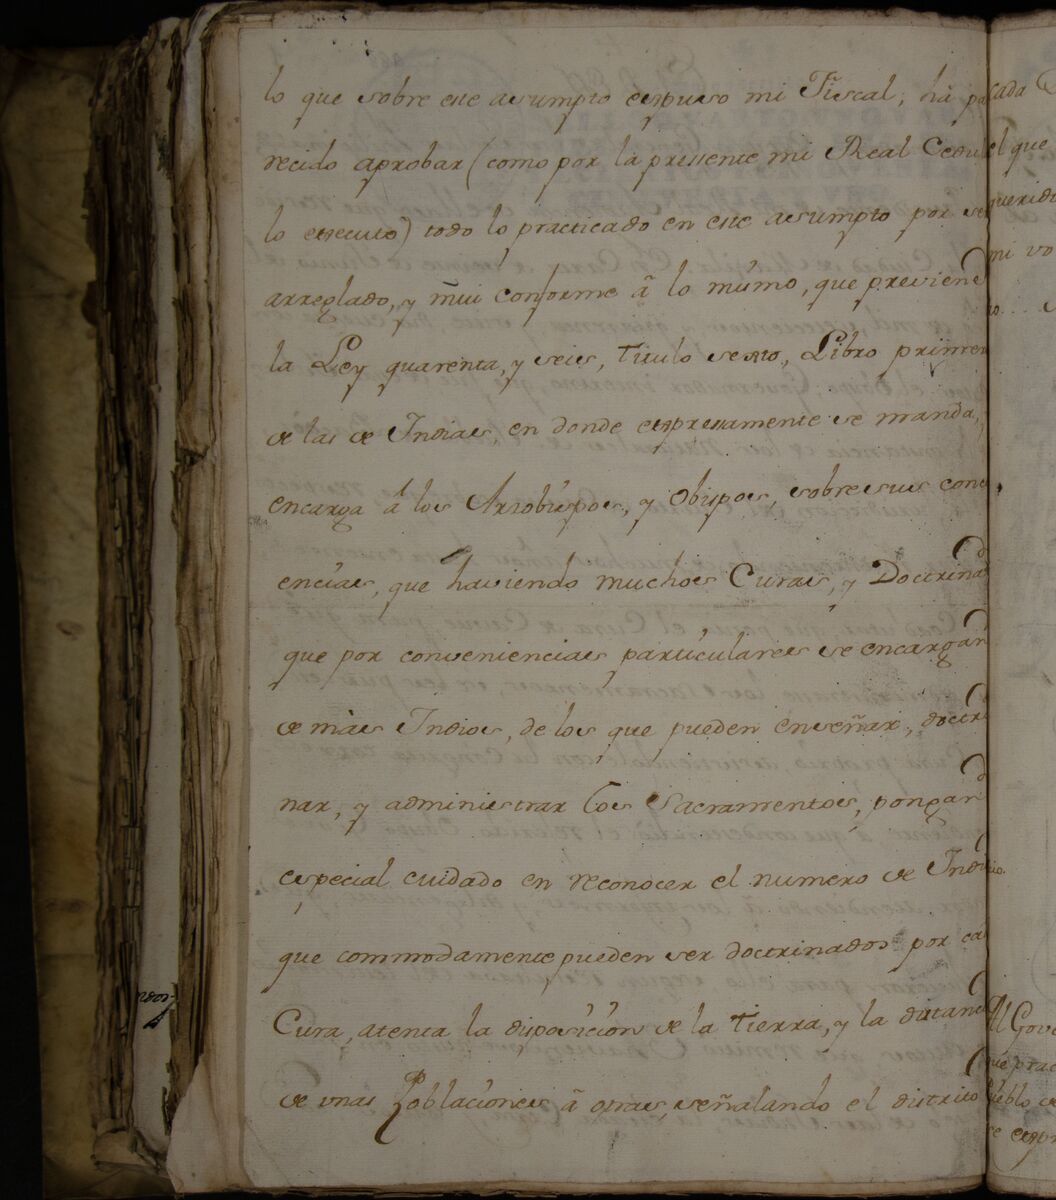 lo que sobre este asumpto expuso mi Fiscal, ha pa
recido aprobar (como por la pressente mi Real Cedul
lo executo) todo lo practicado en este asumpto por ser
arreglado, y mui conforme â lo mismo, que previene
la Ley quarenta, y seis, titulo sexto, Libro primer
de las de Indias, en donde expressamente se manda,
encarga â los Arzobispos, y Obispos, sobre sus conc
encias, que haviendo muchos Curas, y Doctrina
que por conveniencias particulares se encargan
de mas Indios, de los que pueden enseñar, doctri
nar, y administrar los Sacramentos, pongan
especial cuidado en reconocer el numero de Indio
que commodamente pueden ser doctrinados por ca
Cura, atenta la disposicion de la tierra, y la distanc
de unas Poblaciones â otras, señalando el distrito
cada
el que
querido
mi vo
Al Gove
que prac
Pueblo de
se expr